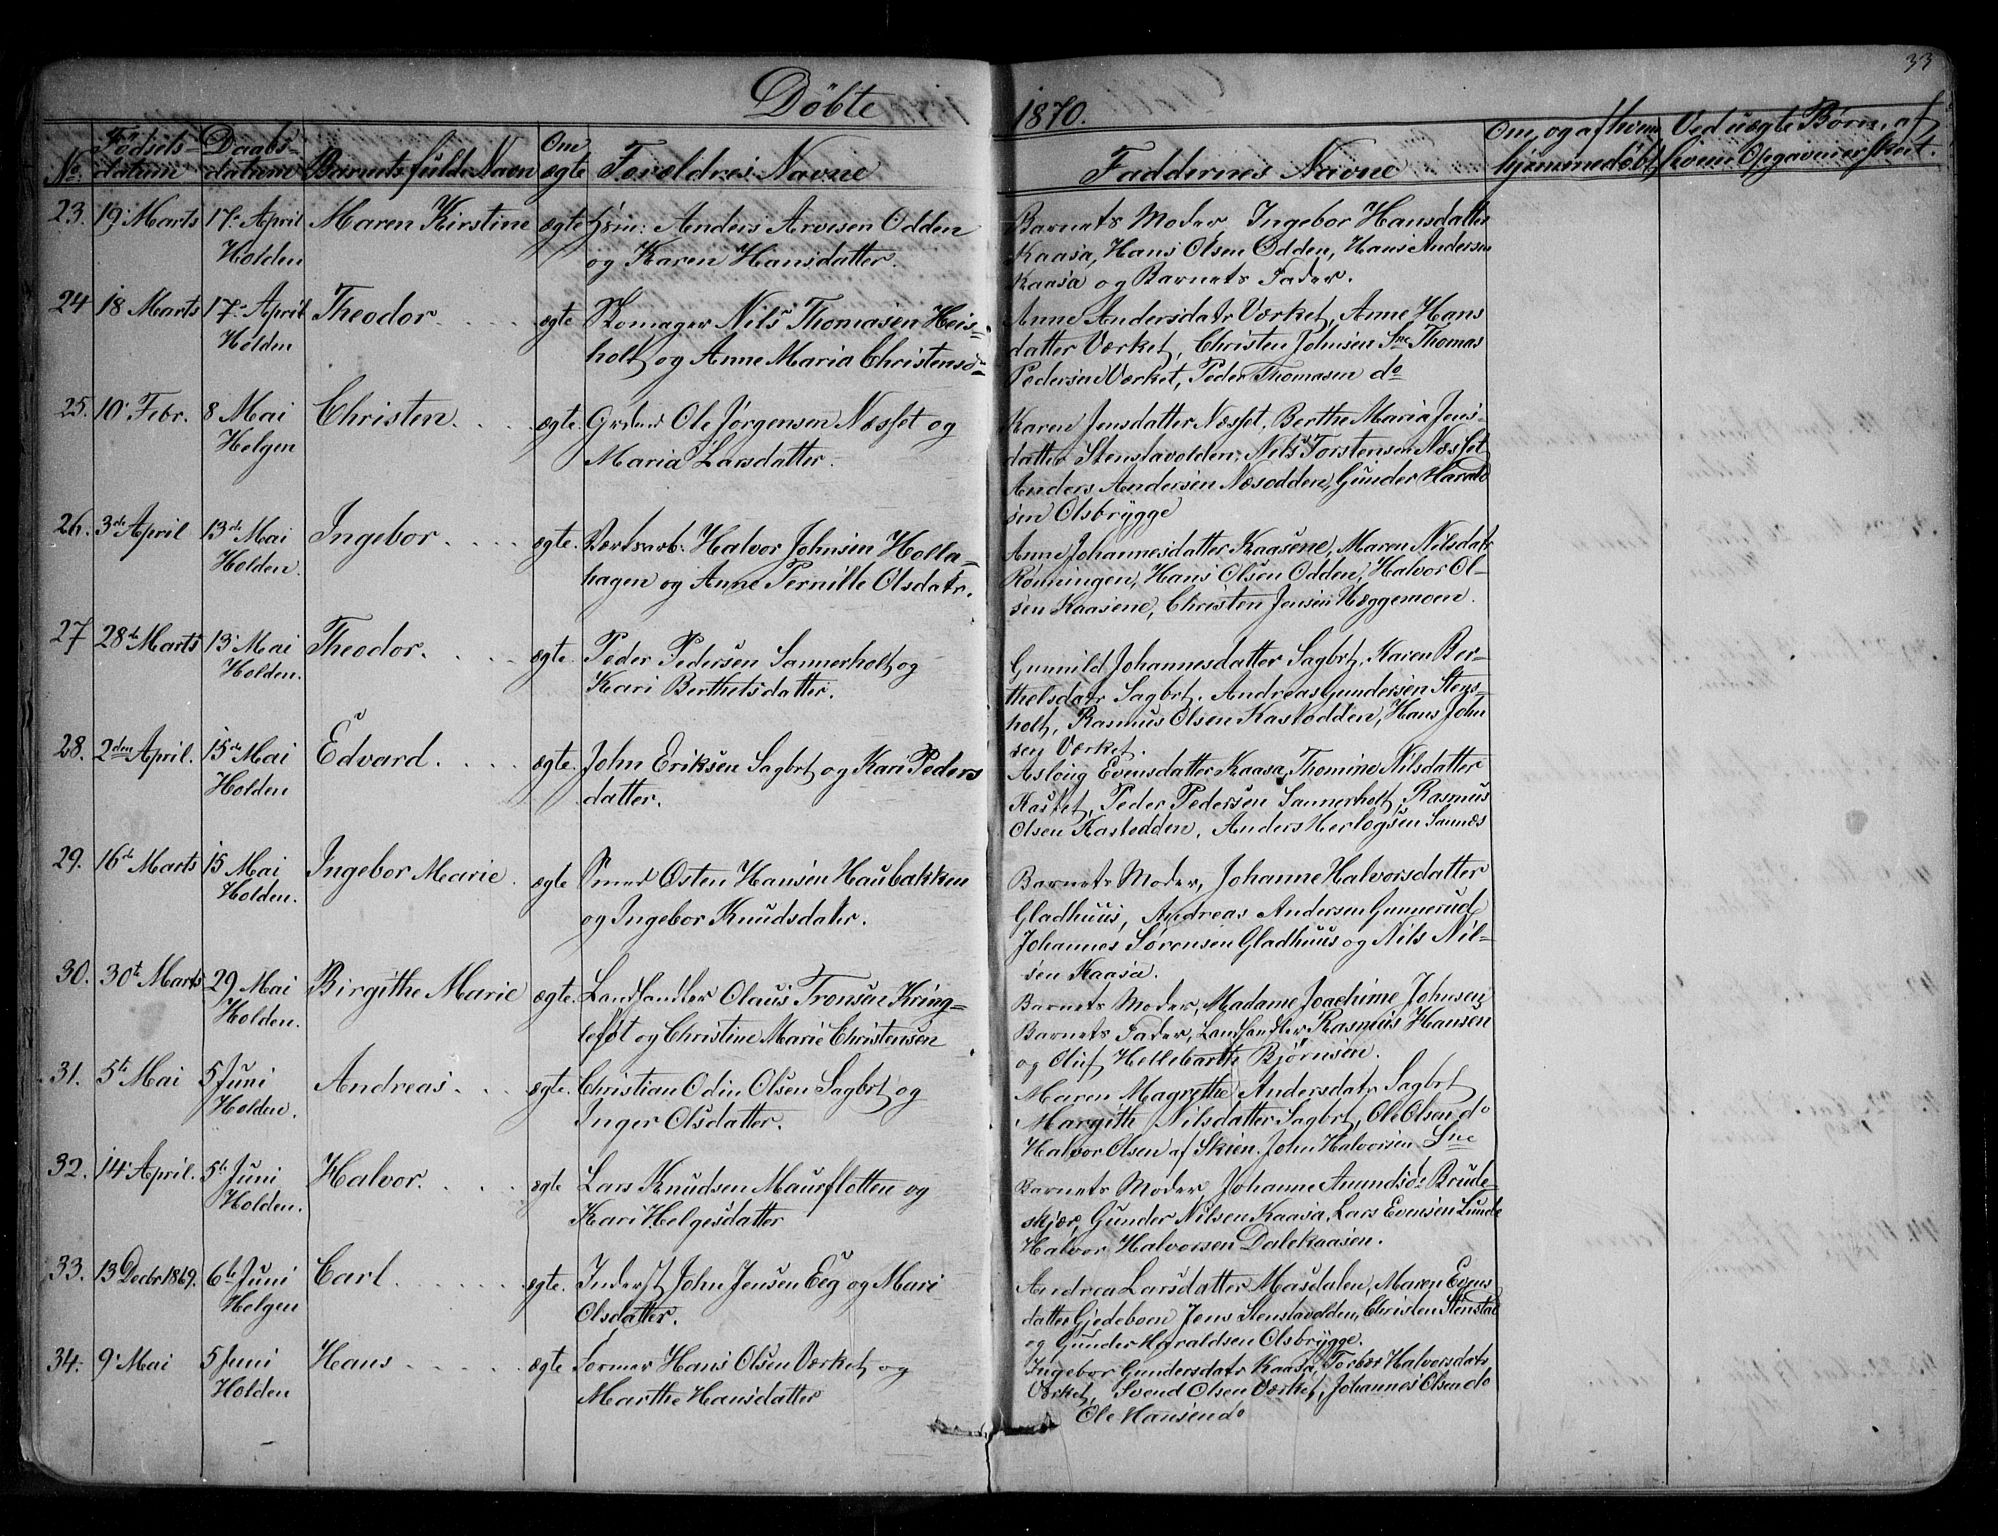 33
Döbte 1870.
No. Födsels-datum Daabs-datum Barnets fulde Navn Om ægte Forældres Navne Faddernes Navne Om, og af hvem hjemmedøbt Ved uægte Børn, af hvem Opgaven er skeet.
23. 19 Marts 17de April Maren Kirstine ægte Anders Arvesen Odden
Holden og Karen Hansdatter.
Barnets Moder, Ingebor Hansdatter
Kaasa, Hans Olsen Odden, Hans Andersen
Kaasa og Barnets Fader.
24 18 Marts 17de April Theodor ægte Skomager Nils Thomasen Heis-
Holden holt og Anne Maria Christensd
Anne Andersdatr Værket, Anne Hans
datter Værket, Christen Johnsen Sne Thomas
Pedersen Værket, Peder Thomasen do
25. 10 Febr. 8 Mai Christen ægte. Grdmd Ole Jørgensen Næsset og
Helgen Maria Larsdatter.
Karen Jensdatter Næsset, Berthe Maria Jens-
datter Stenstavolden, Nils Torstensen Næsset
Anders Andersen Næsodden, Gunder Harald
sen Olsbrygge
26. 3de April 13de Mai Ingebor ægte. Værksarb: Halvor Johnsen Holla-
Holden. hagen og Anne Pernille Olsdatr.
Anne Johannesdatter Kaasene, Maren Nilsdatr
Rønningen, Hans Olsen Odden, Halvor Ol-
sen Kaasene, Christen Jensen Hæggemoen.
27 28de Marts 13 Mai Theodor. ægte. Peder Pedersen Sannerholt og
Holden. Kari Berthelsdatter.
Gunnild Johannesdatter Sagbrt, Karen Ber-
thelsdatr Sagbrt. Andreas Gundersen Stens-
holt, Rasmus Olsen Kastodden, Hans John
sen Værket.
28. 2den April. 15de Mai Edvard. ægte. John Eriksen Sagbrt og Kari Peders
Holden datter.
Aslaug Evensdatter Kaasa, Thomine Nilsdatter
Kastet, Peder Pedersen Sannerholt, Rasmus
Olsen Kastodden, Anders Herlogsen Sannæs
29. 16de Marts 15 Mai Ingebor Marie. ægte Smed Østen Hansen Haubakken
Holden. og Ingebor Knudsdater.
Barnets Moder, Johanne Halvorsdatter
Gladhuus, Andreas Andersen Gunnerud
Johannes Sørensen Gladhuus og Nils Nil-
sen Kaasa.
30. 30t Marts 29 Mai Birgithe Marie ægte. Landhandler Olaus Tronsen Kring-
Holden. lefot og Christine Marie Christensen
Barnets Moder, Madame Joachime Johnsen
Barnets Fader, Landhandler Rasmus Hansen
og Oluf Hellebarth Bjørnsen.
31. 5te Mai 5 Juni Andreas ægte. Christian Odin Olsen Sagbrt og
Holden. Inger Olsdatter.
Maren Magrethe Andersdatr Sagbrt
Margith Nilsdatter Sagbrt, Ole Olsen do
Halvor Olsen af Skien. John Halvorsen Sne
32. 14 April. 5te Juni Halvor. ægte Lars Knudsen Maurflotten og
Holden. Kari Helgesdatter
Barnets Moder, Johanne Amundsdr Brude-
skjær, Gunder Nilsen Kaasa, Lars Evensen Lunde
Halvor Halvorsen Dalekaasen.
33. 13 Decbr 1869. 6te Juni Carl ægte. Inderst John Jensen Eeg og Mari
Helgen Olsdatter.
Andrea Larsdatter Masdalen, Maren Evens
datter Gjedeboen Jens Stenstavolden, Christen Stenstad
og Gunder Haraldsen Olsbrygge.
34. 9 Mai 5 Juni Hans ægte Former Hans Olsen Værket og
Holden Marthe Hansdatter
Ingebor Gundersdatr Kaasa, Torbør Halvorsdatr
Værket, Svend Olsen Værket, Johannes Olsen do
Ole Hansen do